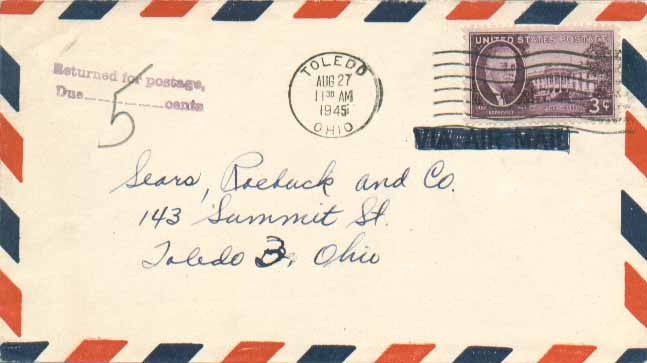 UNITED STATES POSTAGE
3¢
TOLEDO
AUG 27
11 30 AM
1945
OHIO
Returned for postage,
Due 5 cents
VIA AIR MAIL
Sears, Roebuck and Co.
143 Summit St.
Toledo 3, Ohio